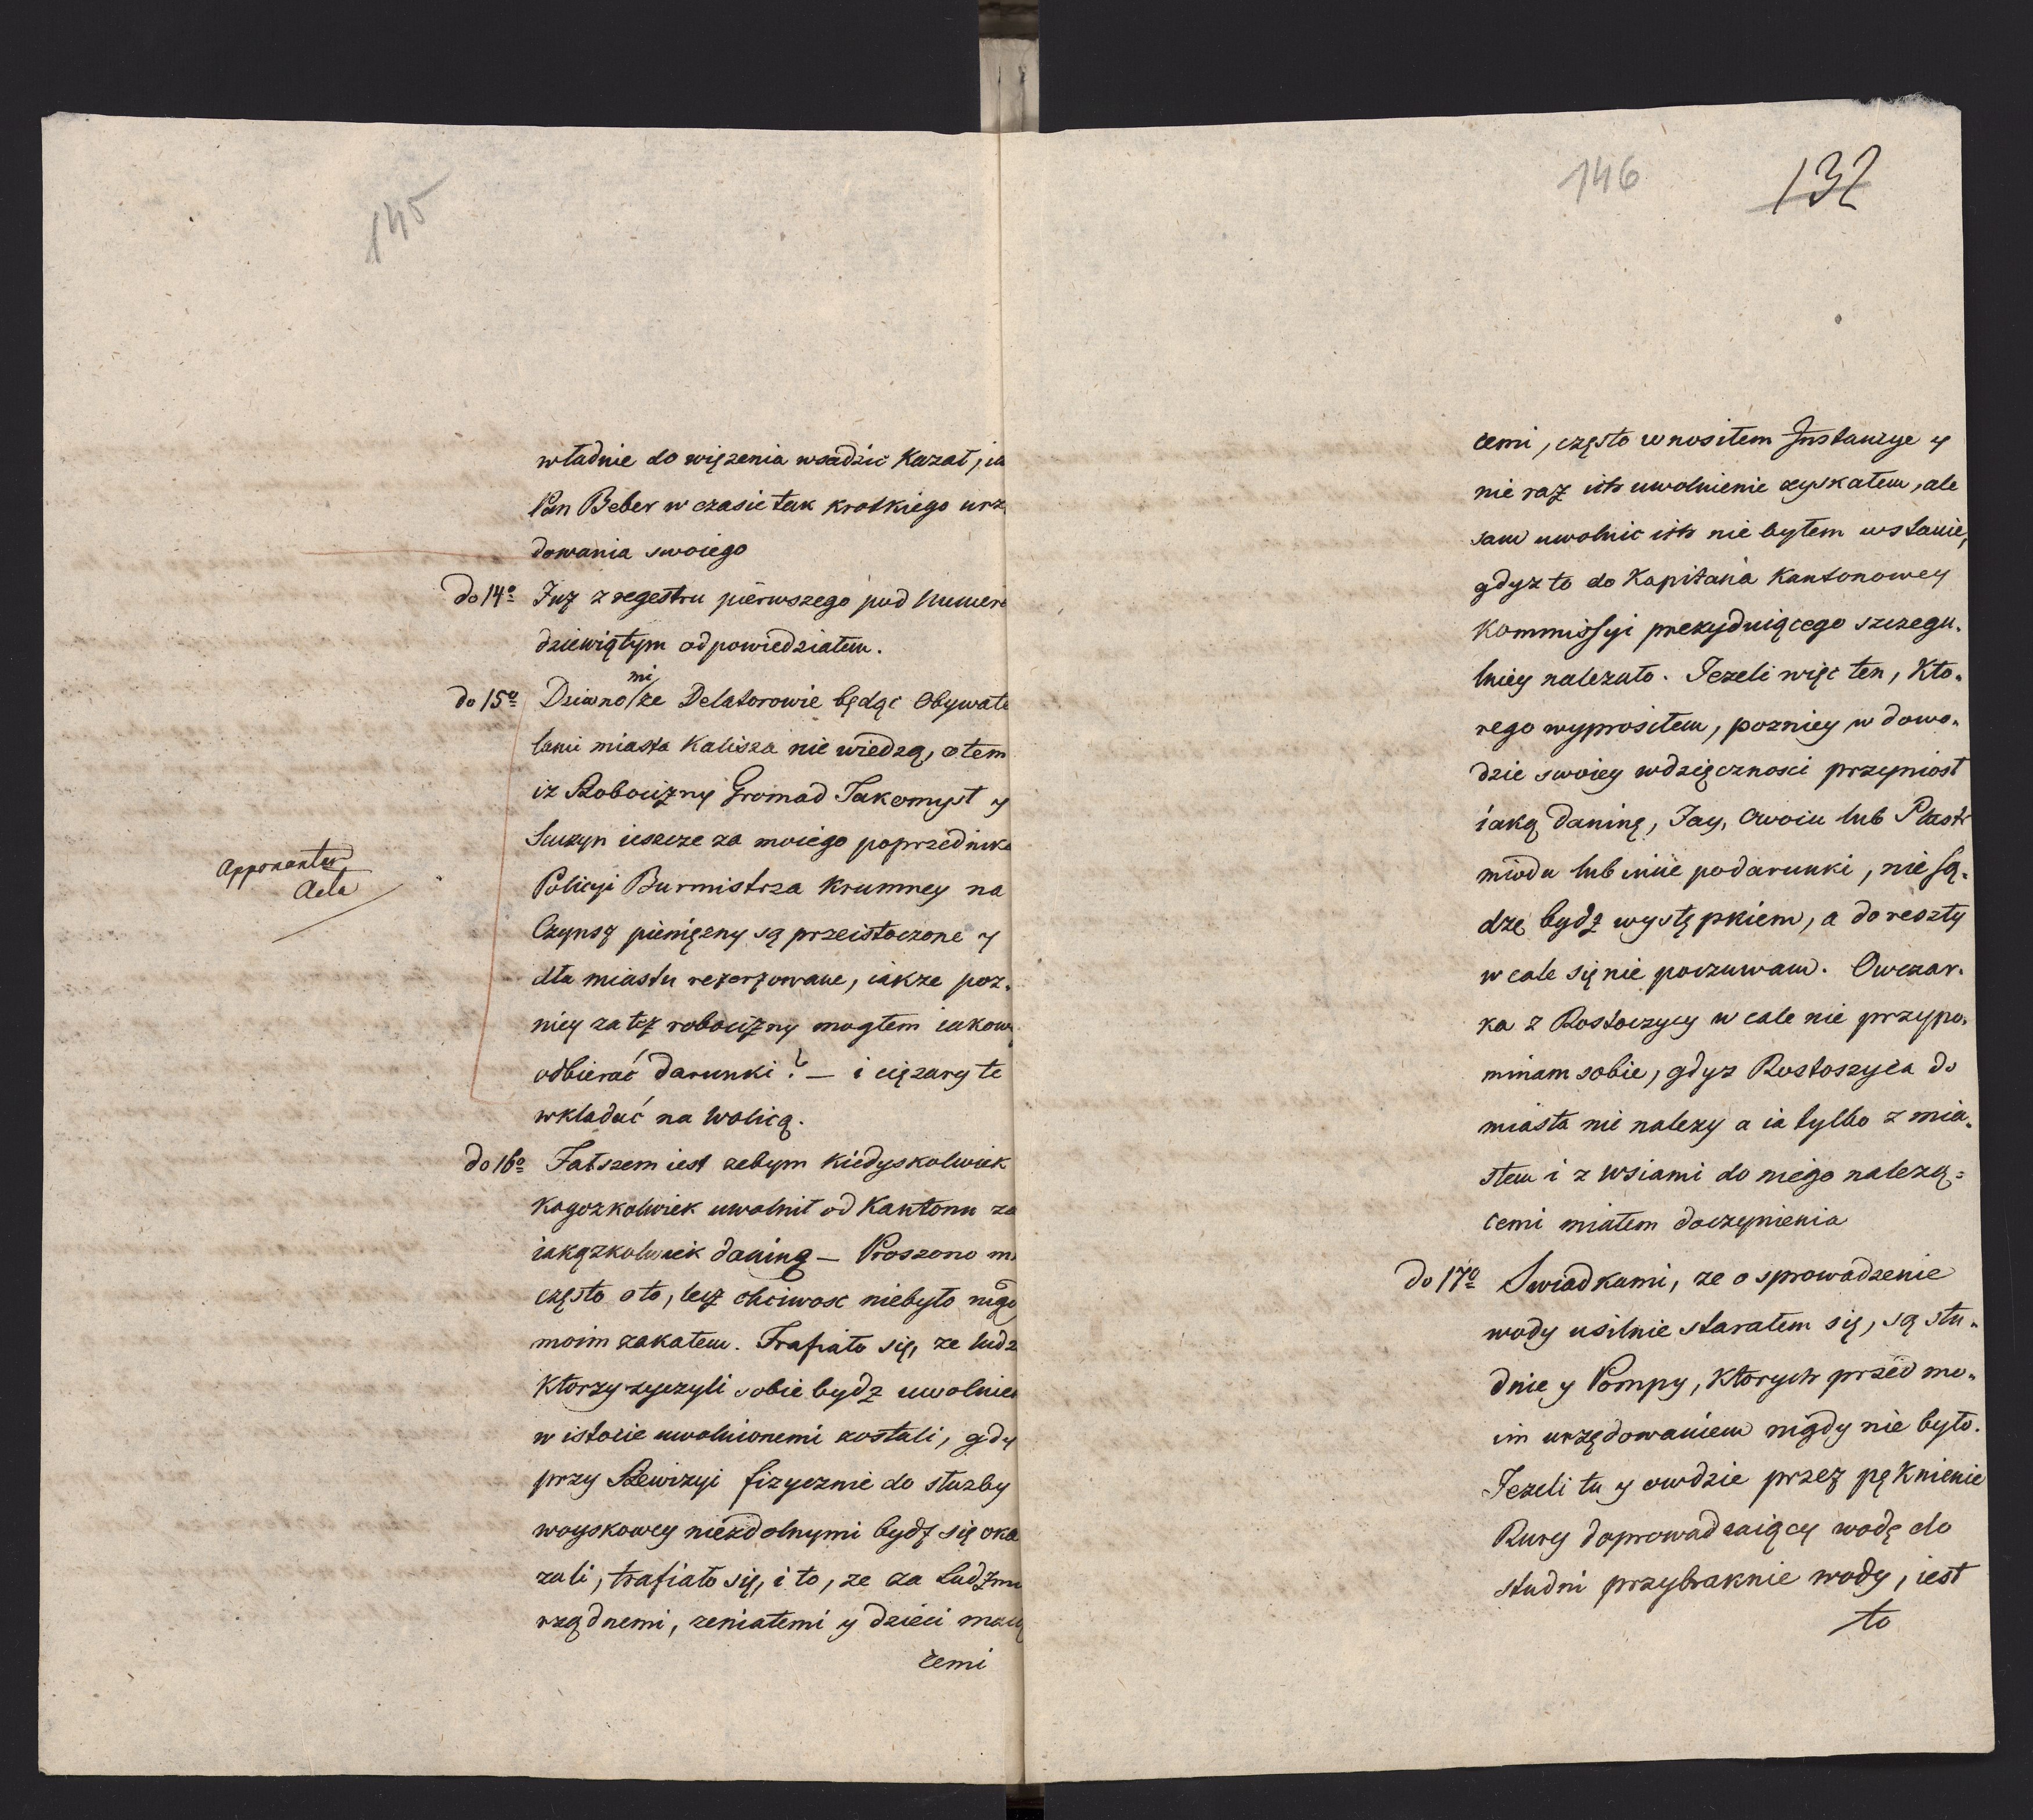 145
władnie do więzenia wsadzić kazał, ia
Pan Beber w czasie tak krotkiego urz
dowania swoiego
do 14o Juz z regestru pierwszego pod Numere
dziewiątym odpowiedziałem.
mi
do 15o Dziwno/ze Delatorowie będąc Obywate
lami miasta Kalisza nie wiedzą, o tem
iz Robocizny Gromad Takomyst y
ieszcze za moiego poprzednika
Policyi Burmistrza Krumney na
Czynsz pienięzny są przeistoczone y
dla miasta rezerzowane, iakze poz.
niey za tęz robocizny mogłem iakow
odbierać darunki? – i cięzary te
wkładać na Wolicą.
Apponantur
Acta
do 16o Fałszem iest zebym kiedyskolwiek
kogozkolwiek uwolnił od Kantonu za
iakązkolwiek daning – Proszono m
często o to, lecz chciwosc niebyło nigd
moim zakałem. Trafiało się, ze ludz
Ktorzy zyczyli sobie bydz uwolnie
w istocie uwolnionemi zostali, gdy
przy Rewizyi fizycznie do słuzby
woyskowey niezdolnymi bydz się oka
zali, trafiało się, i to, ze za Ludzmi
rządnemi, zeniatemi y dzieci maią
cemi
146
132
cemi, często wnosiłem Instancye y
nie raz ich uwolnienie zyskałem, ale
sam uwolnic ich nie byłem wstanie,
gdyz to do Kapitana Kantonowey
Kommissyi prezyduiącego szczegu.
lniey nalezało. Jezeli więc ten, Kto.
rego wyprosiłem, pozniey w dowo.
dzie swoiey wdzięcznosci przyniosł
iaką daninę, Jay, Owocu lub Plastr
miodu lub inne podarunki, nie są.
dzę bydz występkiem, a do reszty
w cale się nie poczuwam. Owczar.
ka z Rostoczycy w cale nie przypo.
minam sobie, gdyz Rostoszyca do
miasta nie nalezy a ia tylko z mia.
stem i z wsiami do niego nalezą=
cemi miałem doczynienia
do 17o Swiadkami, ze o sprowadzenie
wody usilnie starałem się, są stu.
dnie y Pompy, Ktorych przed mo.
im urzędowaniem nigdy nie było.
Jezeli tu y owdzie przez pęknienie
Rury doprowadzaiącey wodę do
studni przybraknie wody, iest
to